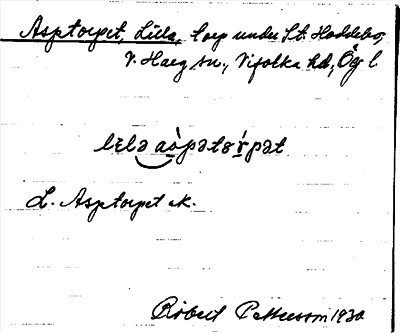 Asptorpet, Lilla, torp under St. Hoddebo,
V. Harg sn., Vifolka hd, Ög l.
lilə aòpətər̀pət
L. Asptorpet ek.
Robert Pettersson 1930